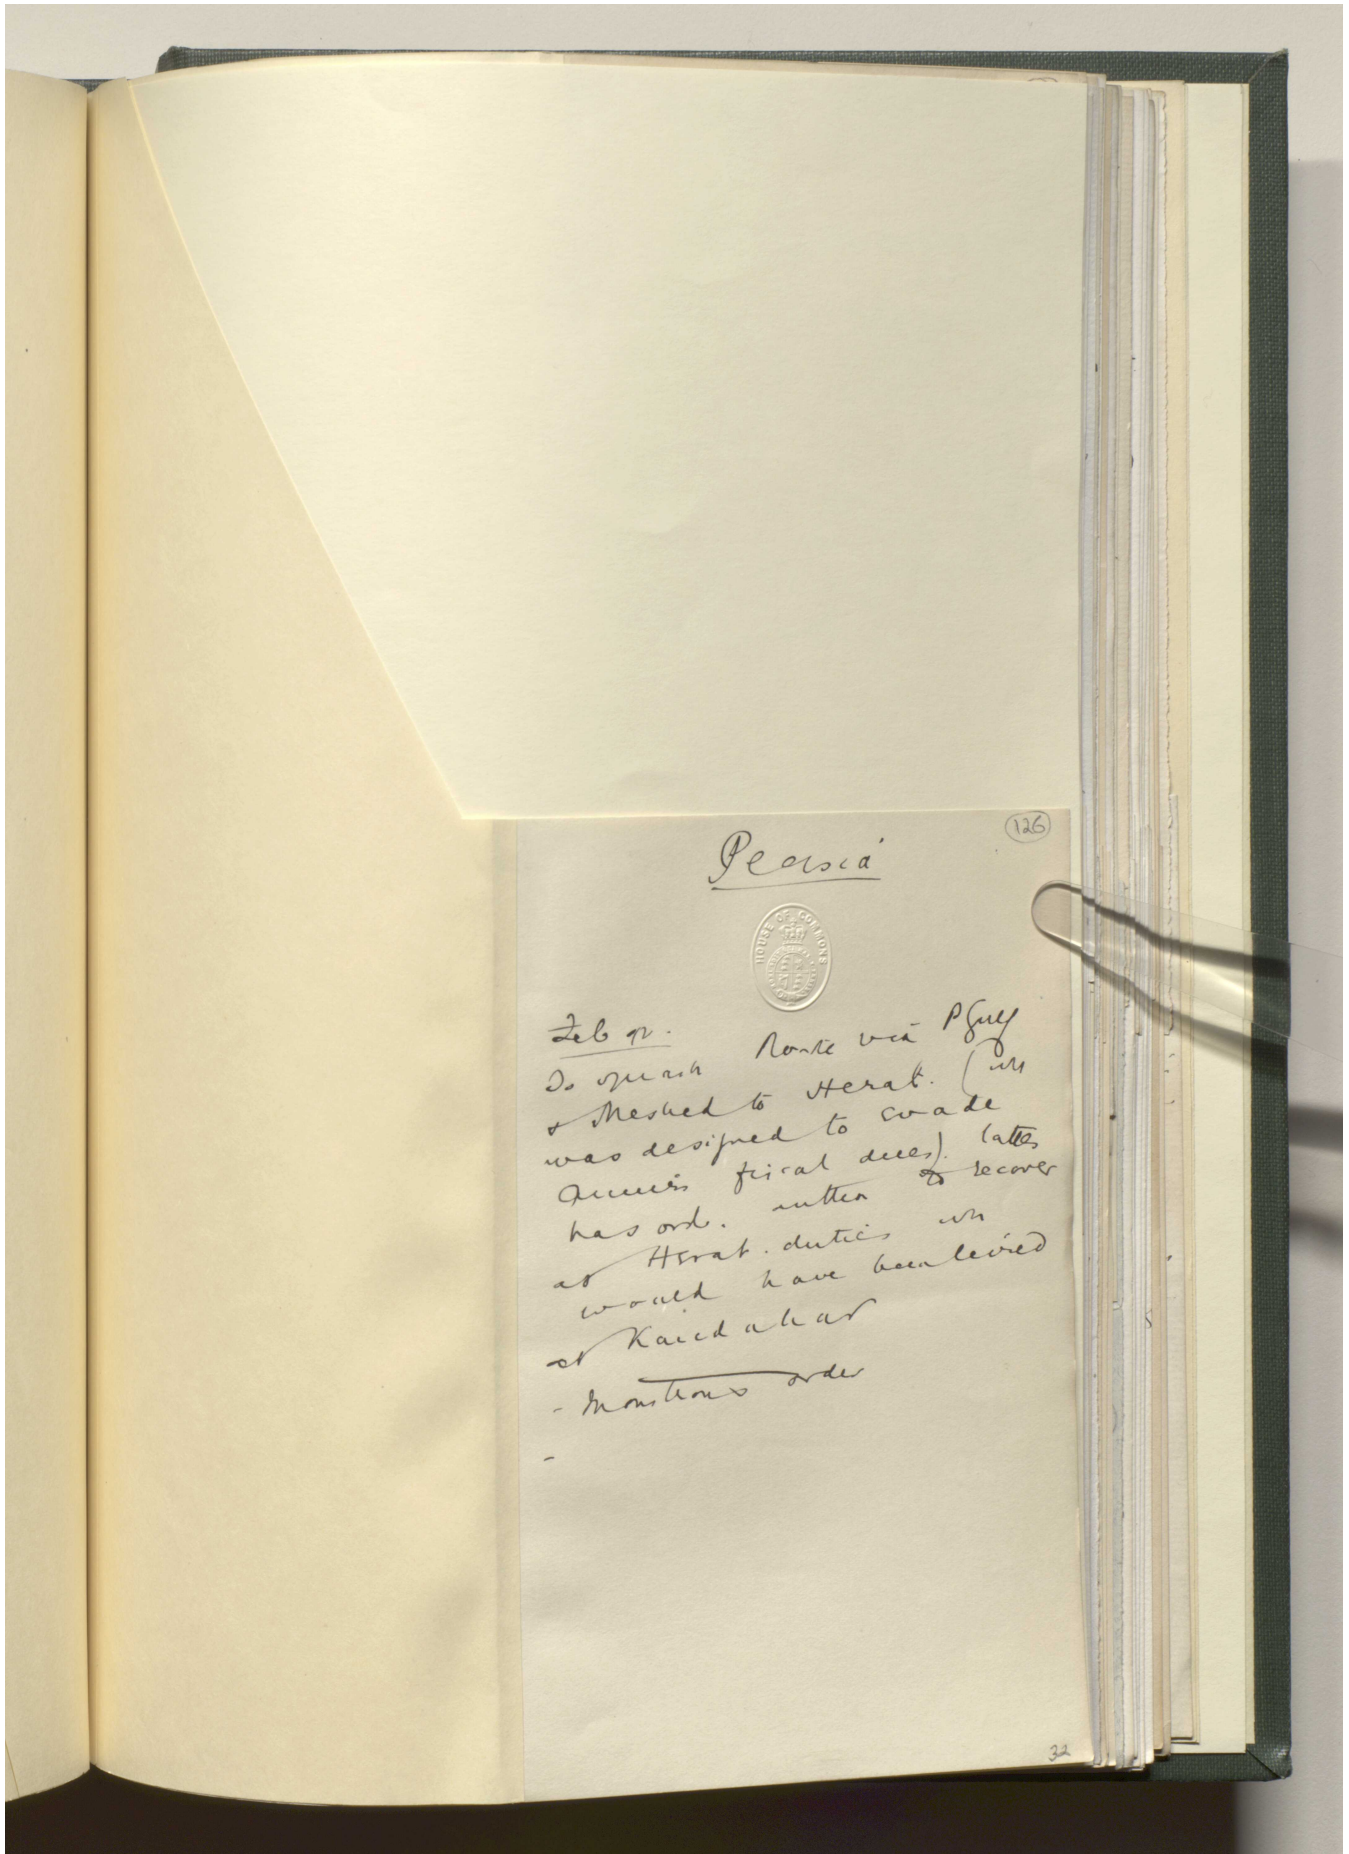 126
Persia
HOUSE OF COMMONS
Feb 92.
To squash Route via P Gulf
& Meshed to Herat. (wh
was designed to evade
Ameer's fiscal dues). latter
has ord. to recover
at Herat. duties wh
would have been levied
at Kandahar
- Monstrous order
-
32